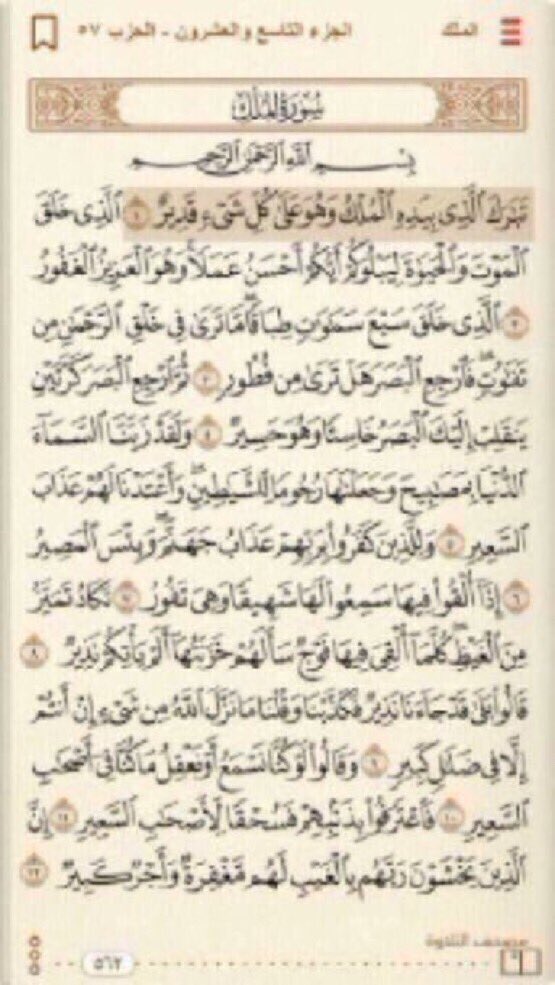 الملك
الجزء التاسع والعشرون - الحزب ٥٧
سُورَةُ المُلْكِ
بِسْمِ اللَّهِ الرَّحْمَٰنِ الرَّحِيمِ
تَبَٰرَكَ ٱلَّذِى بِيَدِهِ ٱلْمُلْكُ وَهُوَ عَلَىٰ كُلِّ شَىْءٍ قَدِيرٌ ١ ٱلَّذِى خَلَقَ
ٱلْمَوْتَ وَٱلْحَيَوٰةَ لِيَبْلُوَكُمْ أَيُّكُمْ أَحْسَنُ عَمَلًا وَهُوَ ٱلْعَزِيزُ ٱلْغَفُورُ
٢ ٱلَّذِى خَلَقَ سَبْعَ سَمَٰوَٰتٍ طِبَاقًا مَّا تَرَىٰ فِى خَلْقِ ٱلرَّحْمَٰنِ مِن
تَفَٰوُتٍ فَٱرْجِعِ ٱلْبَصَرَ هَلْ تَرَىٰ مِن فُطُورٍ ٣ ثُمَّ ٱرْجِعِ ٱلْبَصَرَ كَرَّتَيْنِ
يَنقَلِبْ إِلَيْكَ ٱلْبَصَرُ خَاسِئًا وَهُوَ حَسِيرٌ ٤ وَلَقَدْ زَيَّنَّا ٱلسَّمَآءَ
ٱلدُّنْيَا بِمَصَٰبِيحَ وَجَعَلْنَٰهَا رُجُومًا لِّلشَّيَٰطِينِ وَأَعْتَدْنَا لَهُمْ عَذَابَ
ٱلسَّعِيرِ ٥ وَلِلَّذِينَ كَفَرُوا۟ بِرَبِّهِمْ عَذَابُ جَهَنَّمَ وَبِئْسَ ٱلْمَصِيرُ
٦ إِذَآ أُلْقُوا۟ فِيهَا سَمِعُوا۟ لَهَا شَهِيقًا وَهِىَ تَفُورُ ٧ تَكَادُ تَمَيَّزُ
مِنَ ٱلْغَيْظِ كُلَّمَآ أُلْقِىَ فِيهَا فَوْجٌ سَأَلَهُمْ خَزَنَتُهَآ أَلَمْ يَأْتِكُمْ نَذِيرٌ ٨
قَالُوا۟ بَلَىٰ قَدْ جَآءَنَا نَذِيرٌ فَكَذَّبْنَا وَقُلْنَا مَا نَزَّلَ ٱللَّهُ مِن شَىْءٍ إِنْ أَنتُمْ
إِلَّا فِى ضَلَٰلٍ كَبِيرٍ ٩ وَقَالُوا۟ لَوْ كُنَّا نَسْمَعُ أَوْ نَعْقِلُ مَا كُنَّا فِىٓ أَصْحَٰبِ
ٱلسَّعِيرِ ١٠ فَٱعْتَرَفُوا۟ بِذَنۢبِهِمْ فَسُحْقًا لِّأَصْحَٰبِ ٱلسَّعِيرِ ١١ إِنَّ
ٱلَّذِينَ يَخْشَوْنَ رَبَّهُم بِٱلْغَيْبِ لَهُم مَّغْفِرَةٌ وَأَجْرٌ كَبِيرٌ ١٢
مصحف التلاوة
٥٦٢